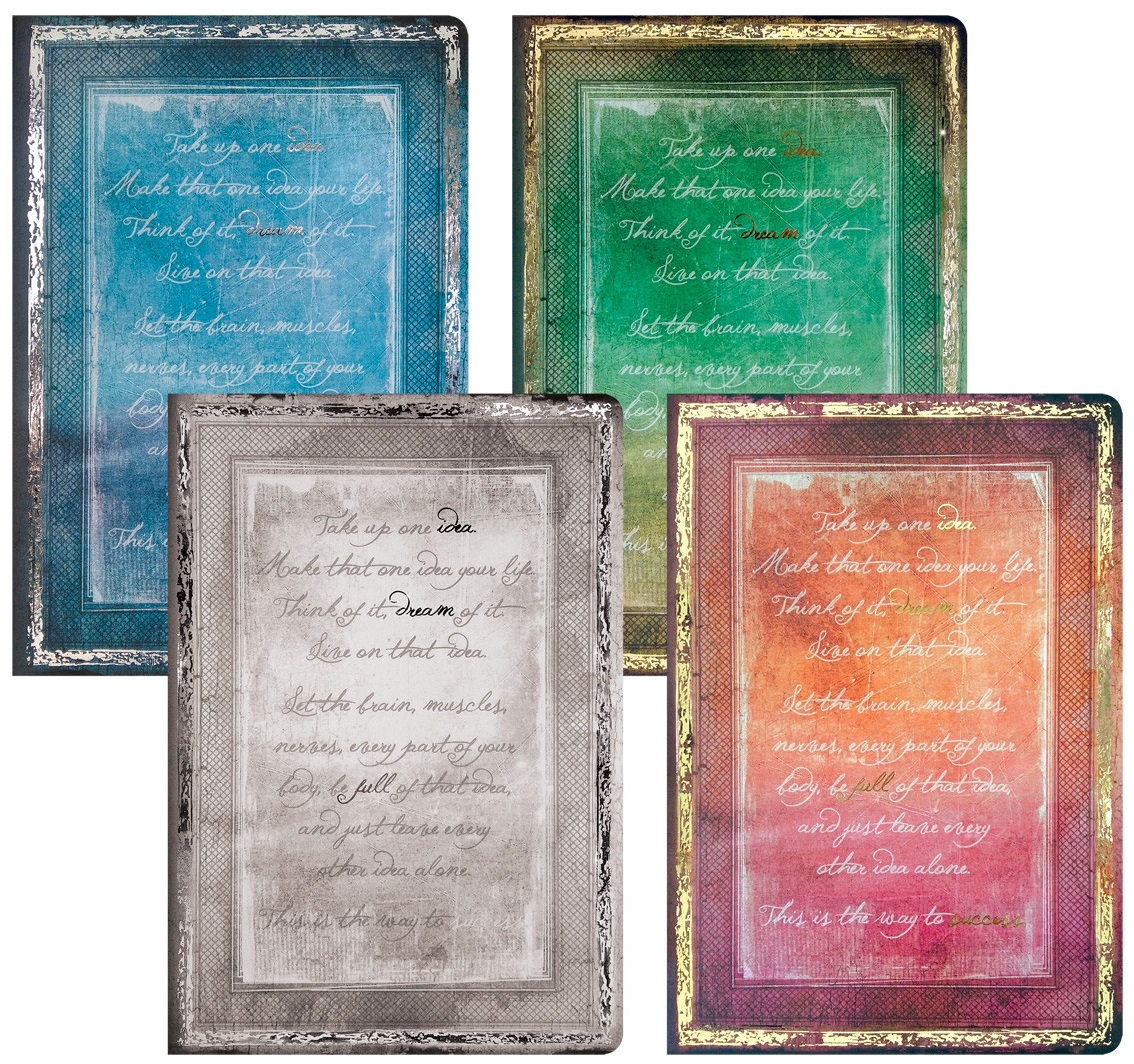 Take up one idea.
Make that one idea your life.
Think of it, dream of it.
Live on that idea.
Let the brain, muscles,
nerves, every part of your
body,
an
This i
Take up one idea.
Make that one idea your life.
Think of it, dream of it.
Live on that idea.
Let the brain, muscles,
nerves, every part of your
body,
an
his i
Take up one idea.
Make that one idea your life.
Think of it, dream of it.
Live on that idea.
Let the brain, muscles,
nerves, every part of your
body, be full of that idea,
and just leave every
other idea alone.
This is the way to
Take up one idea.
Make that one idea your life.
Think of it, dream of it.
Live on that idea.
Let the brain, muscles,
nerves, every part of your
body, be full of that idea,
and just leave every
other idea alone.
This is the way to success